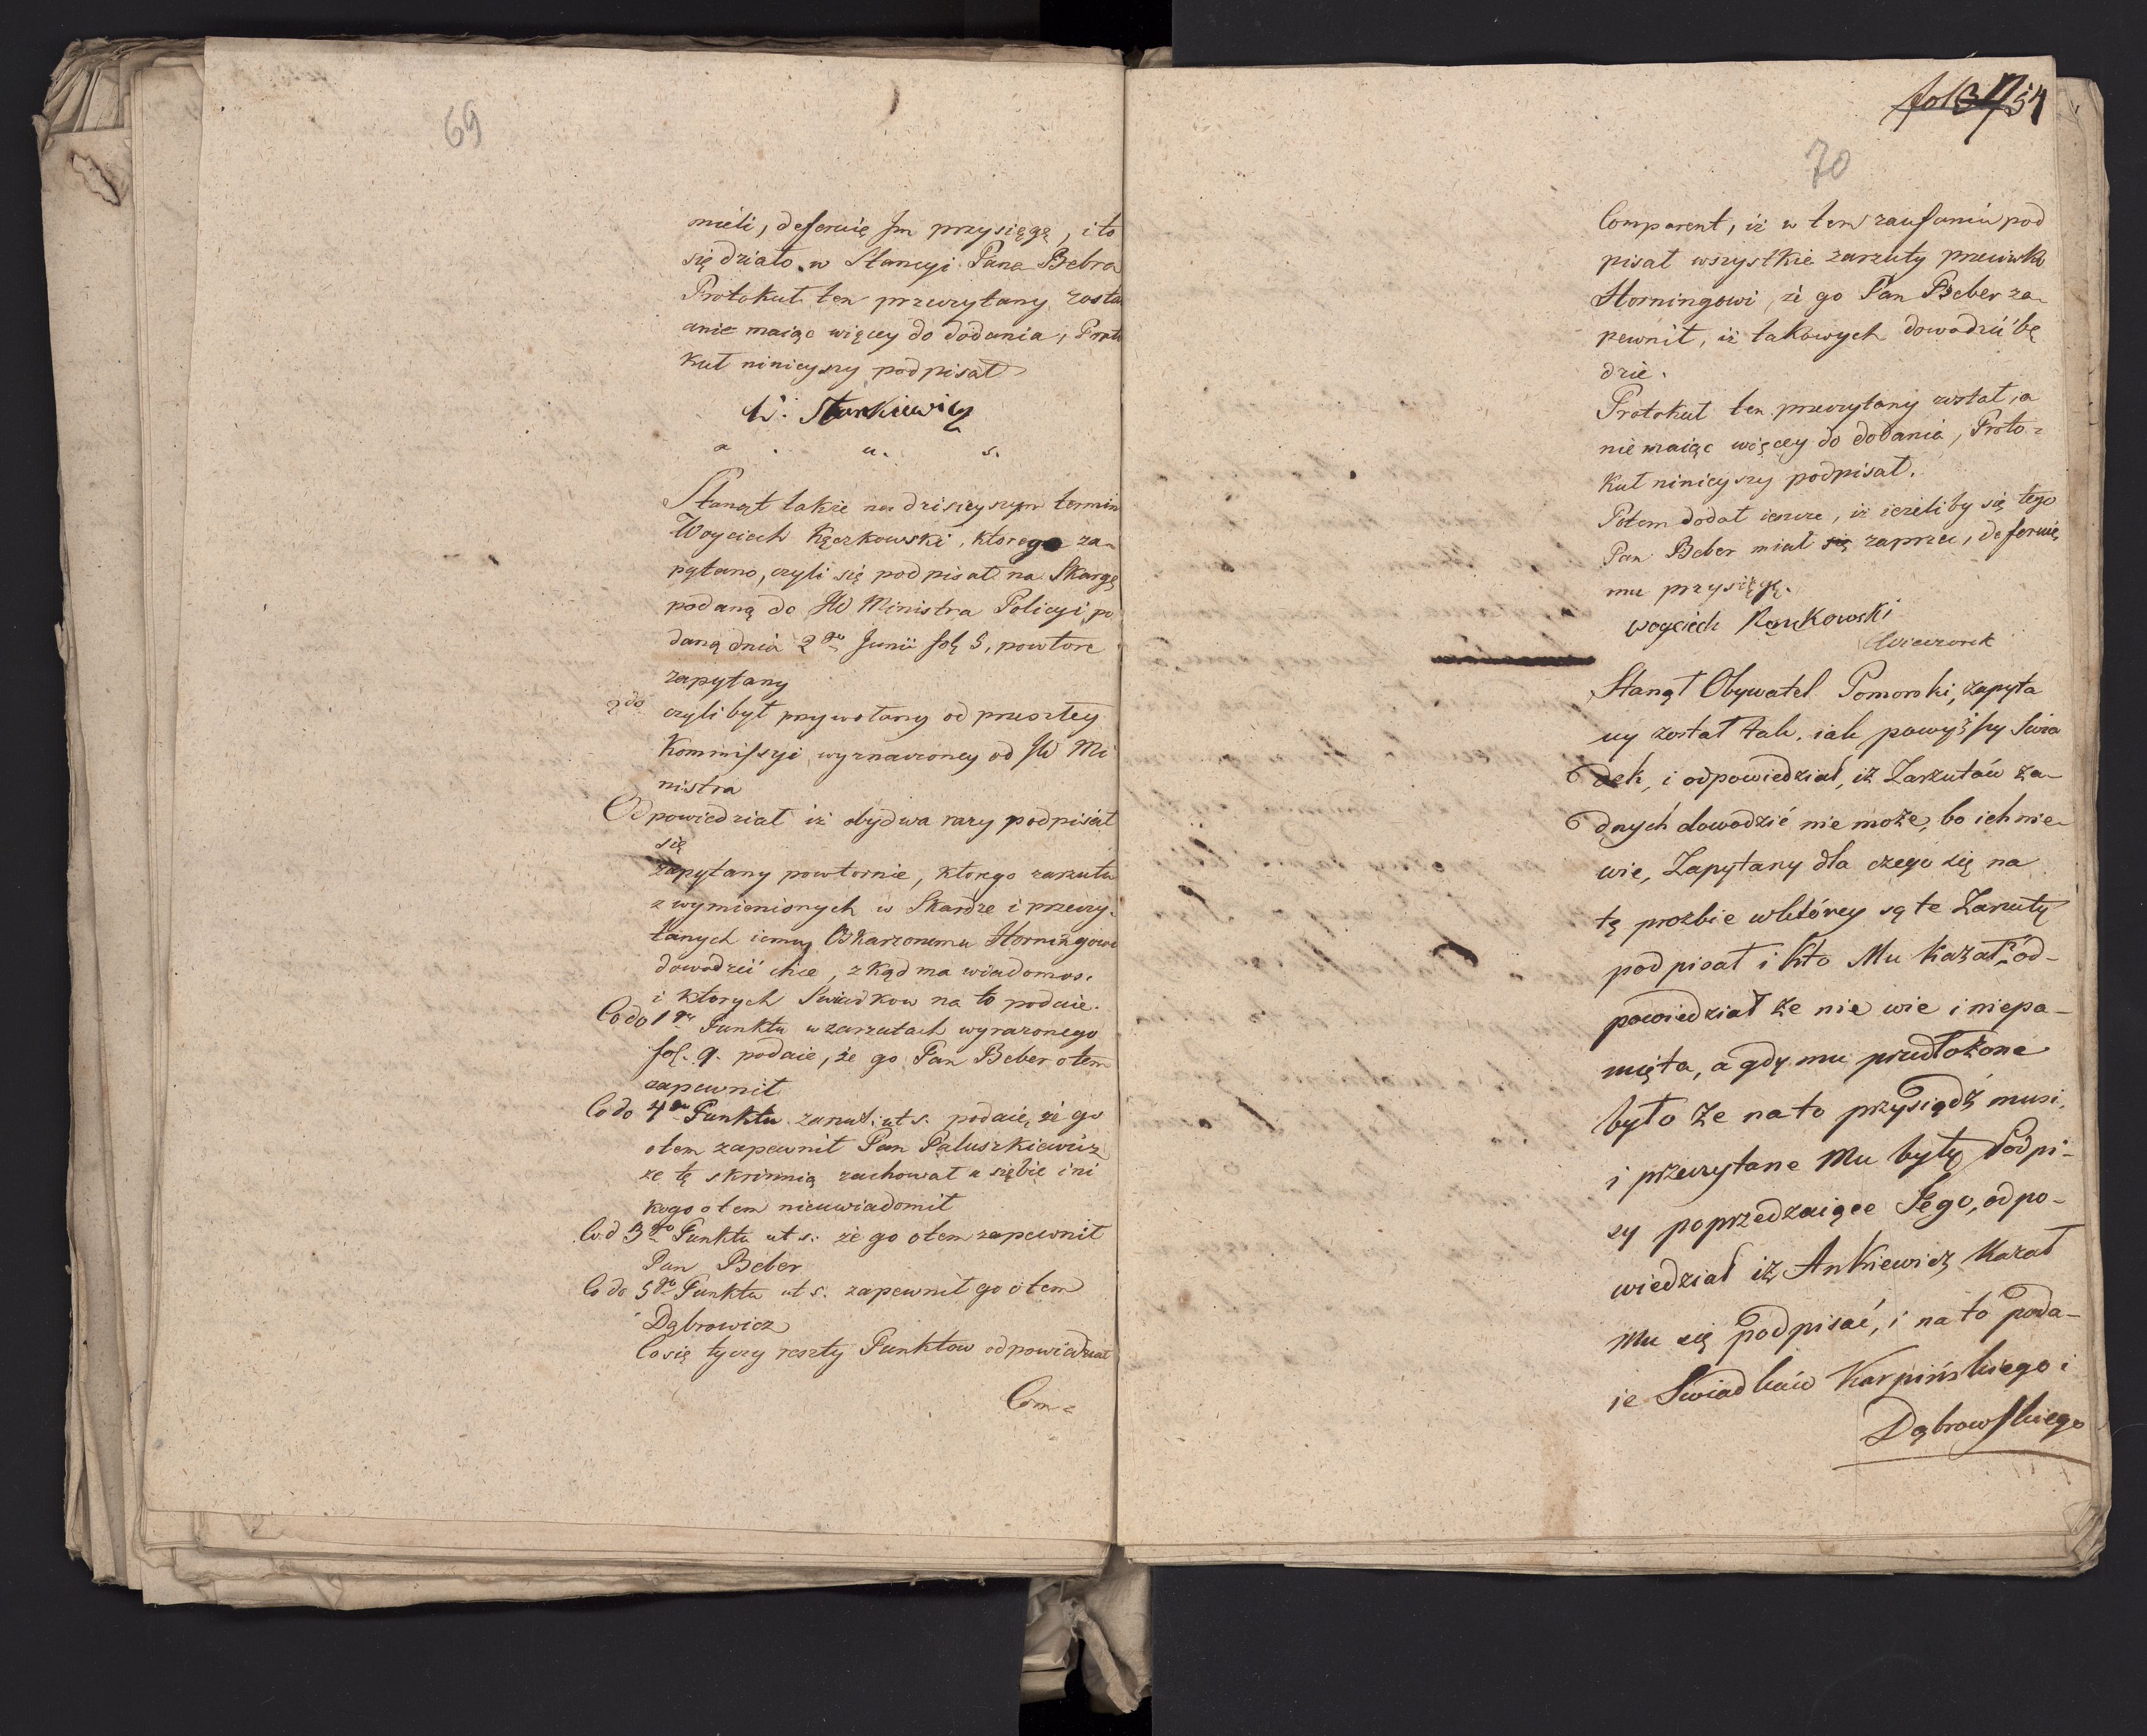 69
mieli, deferuię Im przysięgę, i to
się działo w Stancyi Pana Bebra
Protokuł ten przeczytany zosta
a nie maiąc więcey do dodania, Proto
kuł ninieyszy podpisał
a. u. s.
Stanął także na dzisieyszym termin
Woyciech Kączkowski, którego za-
pytano, czyli się podpisał na Skargę
podaną do JW Ministra Policyi po
daną dnia 2go Junii fol 5, powtore
zapytany
2do czyli był przywołany od przeszłey
Kommissyi wyznaczoney od JW Mi
nistra
Odpowiedział iż obydwa razy podpisał
się
zapytany powtornie, ktorego zarzutu
z wymienionych w Skardze i przeczy-
tanych iemu Oskarzonemu Horningowi
dowodzić chce, zkąd ma wiadomos.
i ktorych Swiadkow na to podaie.
Co do 1go Punktu w zarzutach wyrazonego
fol. 9. podaie, że go Pan Beber o tem
zapewnił
Co do 4go Punktu zarzut: ut s. podaie, że go
o tem zapewnił Pan Paluszkiewicz
że tę skrzynnią zachował u siebie i ni
kogo o tem nieuwiadomił
Co d 3go Punktu ut s. że go o tem zapewnił
Pan Beber
Co do 5go Punktu ut s. zapewnił go o tem
Dąbrowicz
Co się tyczy reszty Punktow odpowiedział
Com=
fol 37 54
70
Comparent, iż w tem zaufaniu pod
pisał wszystkie zarzuty przeciwko
Horningowi, że go Pan Beber za-
pewnił, iż takowych dowodzić bę
dzie.
Protokuł ten przeczytany został, a
nie maiąc więcey do dodania, Proto=
kuł ninieyszy podpisał.
Potem dodał ieszcze, iż ieżeliby się tego
Pan Beber miał się zaprzeć, deferuię
mu przysięgę.
Woyciech Kączkowski
Wieczorek
Stanął Obywatel Pomorski, zapyta
ny został tak, iak powyższy Swia
dek, i odpowiedział, iż Zarzutów ża-
dnych dowodzić nie może, bo ich nie-
wie, Zapytany dla czego się na
tę prozbie w którey są te Zarzuty
podpisał i kto Mu kazał? od-
powiedział że nie wie i niepa-
mięta, a gdy mu przedłożone
było że na to przysiądz musi,
i przeczytane Mu były Podpi-
sy poprzedzaiące Jego, odpo-
wiedział iż Ankiewicz kazał
Mu się podpisać, i na to poda-
ie Swiadków Karpińskiego i
Dąbrowskiego